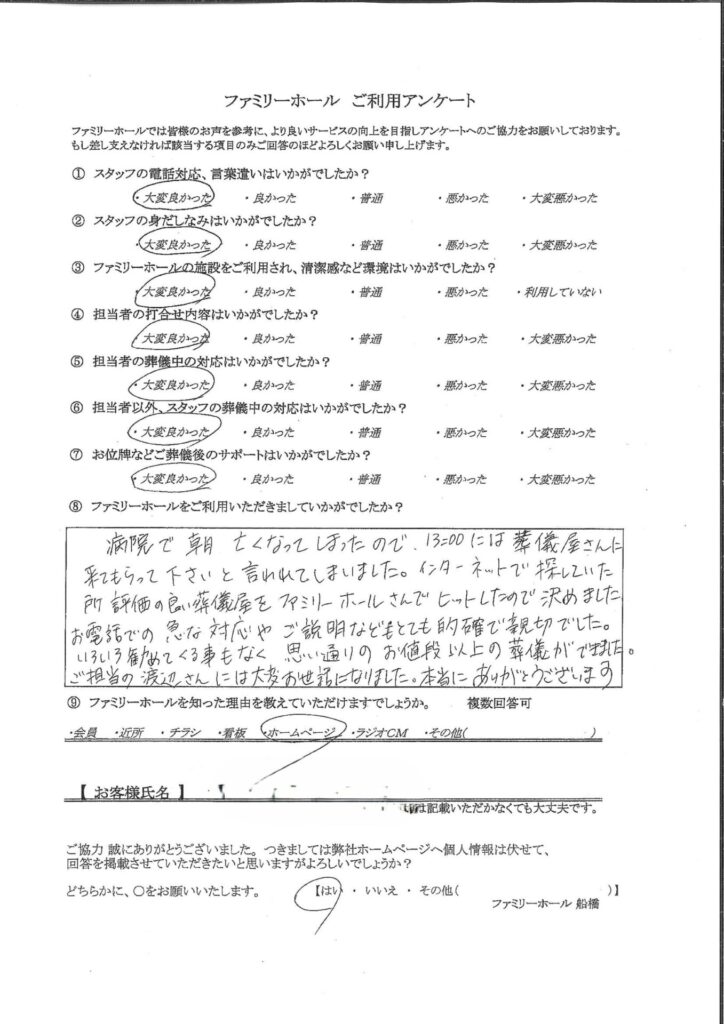 ファミリーホール ご利用アンケート
ファミリーホールでは皆様のお声を参考に、より良いサービスの向上を目指しアンケートへのご協力をお願いしております。
もし差し支えなければ該当する項目のみご回答のほどよろしくお願い申し上げます。
① スタッフの電話対応、言葉遣いはいかがでしたか？
・大変良かった ・良かった ・普通 ・悪かった ・大変悪かった
② スタッフの身だしなみはいかがでしたか？
・大変良かった ・良かった ・普通 ・悪かった ・大変悪かった
③ ファミリーホールの施設をご利用され、清潔感など環境はいかがでしたか？
・大変良かった ・良かった ・普通 ・悪かった ・利用していない
④ 担当者の打合せ内容はいかがでしたか？
・大変良かった ・良かった ・普通 ・悪かった ・大変悪かった
⑤ 担当者の葬儀中の対応はいかがでしたか？
・大変良かった ・良かった ・普通 ・悪かった ・大変悪かった
⑥ 担当者以外、スタッフの葬儀中の対応はいかがでしたか？
・大変良かった ・良かった ・普通 ・悪かった ・大変悪かった
⑦ お位牌などご葬儀後のサポートはいかがでしたか？
・大変良かった ・良かった ・普通 ・悪かった ・大変悪かった
⑧ ファミリーホールをご利用いただきましていかがでしたか？
病院で 朝 亡くなってしまったので、13:00には葬儀屋さんに
来てもらって下さいと言われてしまいました。インターネットで探していた
所 評価の良い葬儀屋をファミリーホールさんでヒットしたので決めました
お電話での急な対応やご説明などもとても的確で親切でした。
いろいろ勧めてくる事もなく 思い通りのお値段以上の葬儀ができました。
ご担当の渡辺さんには大変お世話になりました。本当にありがとうございます
⑨ ファミリーホールを知った理由を教えていただけますでしょうか。 複数回答可
・会員 ・近所 ・チラシ ・看板 ・ホームページ ・ラジオCM ・その他( )
【 お客様氏名 】
は記載いただかなくても大丈夫です。
ご協力 誠にありがとうございました。つきましては弊社ホームページへ個人情報は伏せて、
回答を掲載させていただきたいと思いますがよろしいでしょうか？
どちらかに、〇をお願いいたします。 【はい ・ いいえ ・ その他( )】
ファミリーホール 船橋